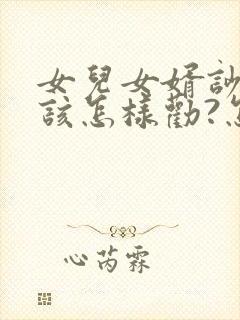 女兒女婿
該怎樣勸?
心芮霖